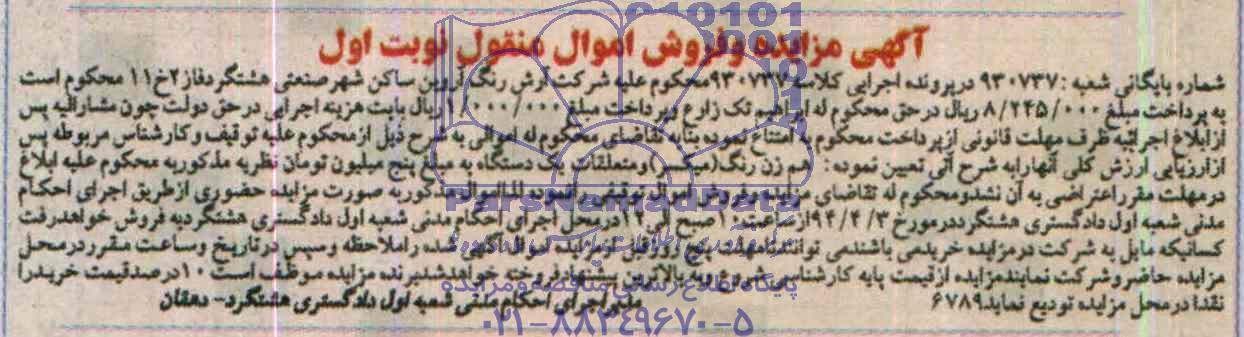 آگهی مزایده وفروش اموال منقول نوبت اول
شماره بایگانی شعبه :۹۳۰۷۳۷ درپرونده اجرایی کلاسه ۹۳۰۷۳۷محکوم علیه شرکت آرش رنگ آروین ساکن شهرصنعتی هشتگردفاز۲خ۱۱ محکوم است
به پرداخت مبلغ ۸/۲۴۵/۰۰۰ ریال درحق محکوم له ابراهیم تک زارع وپرداخت مبلغ ۱/۰۰۰/۰۰۰ریال بابت هزینه اجرایی درحق دولت چون مشارالیه پس
ازابلاغ اجرائیه ظرف مهلت قانونی ازپرداخت محکوم به امتناع نموده بنابه تقاضای محکوم له اموالی به شرح ذیل ازمحکوم علیه توقیف وکارشناس مربوطه پس
ازارزیابی ارزش کلی آنهارابه شرح آتی تعیین نموده : هم زن رنگ(میکسر)ومتعلقات یک دستگاه به مبلغ پنج میلیون تومان نظریه مذکوربه محکوم علیه ابلاغ
درمهلت مقرراعتراضی به آن نشدومحکوم له تقاضای مزایده وفروش اموال توقیفی رانموده لذااموال مذکوربه صورت مزایده حضوری ازطریق اجرای احکام
مدنی شعبه اول دادگستری هشتگرددرمورخ ۹۴/۴/۳ازساعت۱۰صبح الی۱۲درمحل اجرای احکام مدنی شعبه اول دادگستری هشتگردبه فروش خواهدرفت
کسانیکه مایل به شرکت درمزایده خریدمی باشندمی توانندتامهلت پنج روزقبل ازمزایده اموال آگهی شده راملاحظه وسپس درتاریخ وساعت مقرردرمحل
مزایده حاضروشرکت نمایندمزایده ازقیمت پایه کارشناسی شروع وبه بالاترین پیشنهادفروخته خواهدشدبرنده مزایده موظف است ۱۰درصدقیمت خریدرا
نقدا درمحل مزایده تودیع نماید۶۷۸۹
مدیراجرای احکام مدنی شعبه اول دادگستری هشتگرد- دهقان
پایگاه اطلاع رسانی مناقصه ومزایده
۰۲۱-۸۸۳۴۹۶۷۰-۵